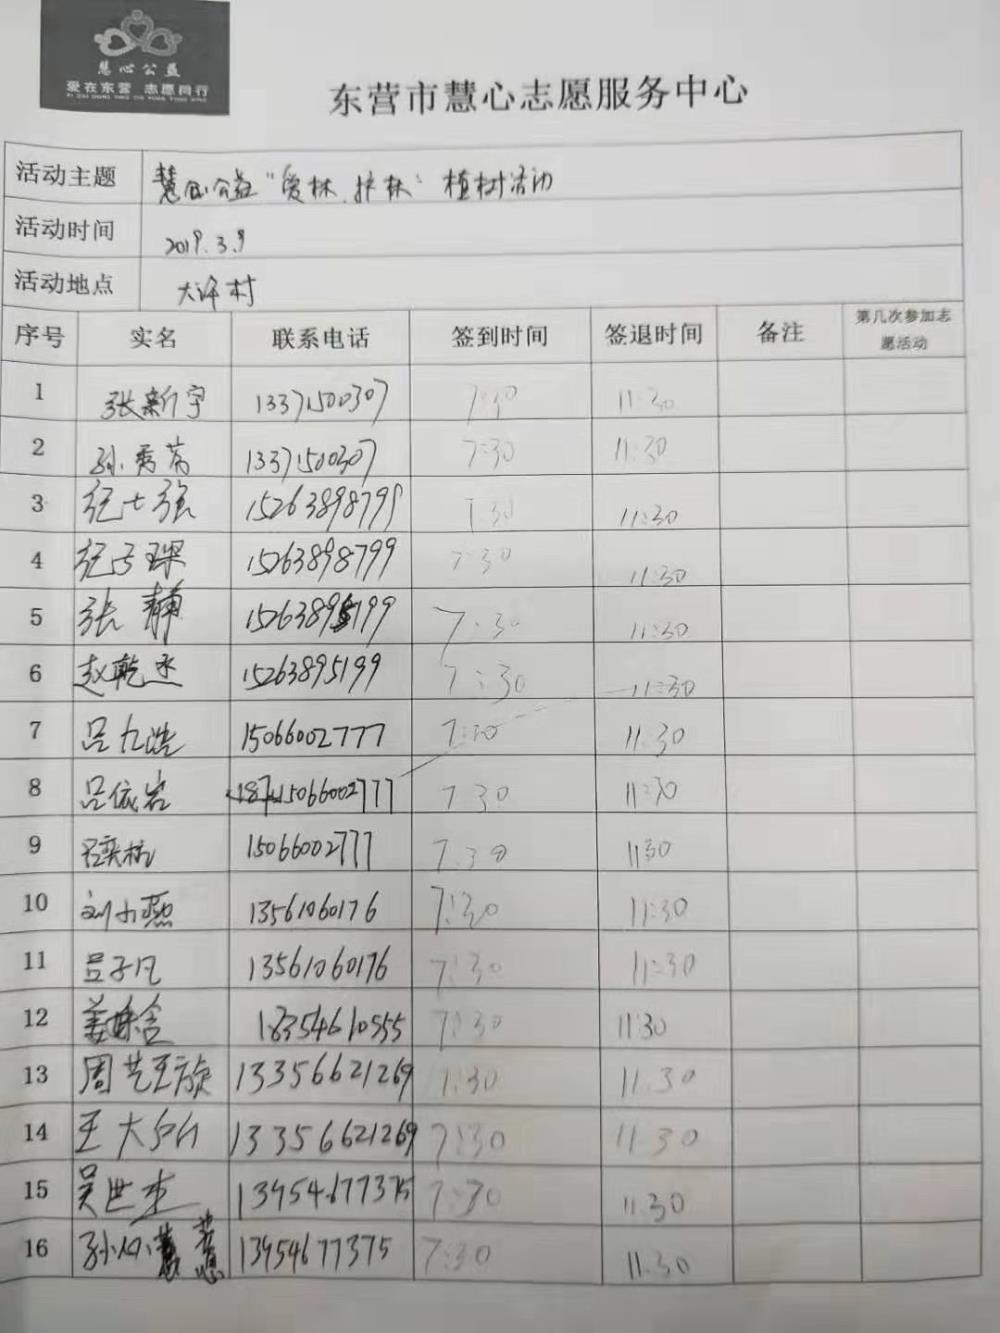 慧心公益
爱在东营 志愿同行
东营市慧心志愿服务中心
活动主题 慧心公益"爱林、护林"植树活动
活动时间 2019.3.9
活动地点 大许村
序号 实名 联系电话 签到时间 签退时间 备注 第几次参加志愿活动
1 张新宇 13371500307 7:30 11:30
2 孙秀芳 13371500307 7:30 11:30
3 纪士强 15263898799 7:30 11:30
4 纪子琛 15263898799 7:30 11:30
5 张静 15263895199 7:30 11:30
6 赵乾丞 15263895199 7:30 11:30
7 吕九浩 15066002777 7:30 11:30
8 吕依岩 15066002777 7:30 11:30
9 15066002777 7:30 11:30
10 刘小燕 13561060176 7:30 11:30
11 吕子凡 13561060176 7:30 11:30
12 18354610555 7:30 11:30
13 周艺旋 13356621269 7:30 11:30
14 王大 13356621269 7:30 11:30
15 吴世杰 13954677375 7:30 11:30
16 孙 慧 13954677375 7:30 11:30